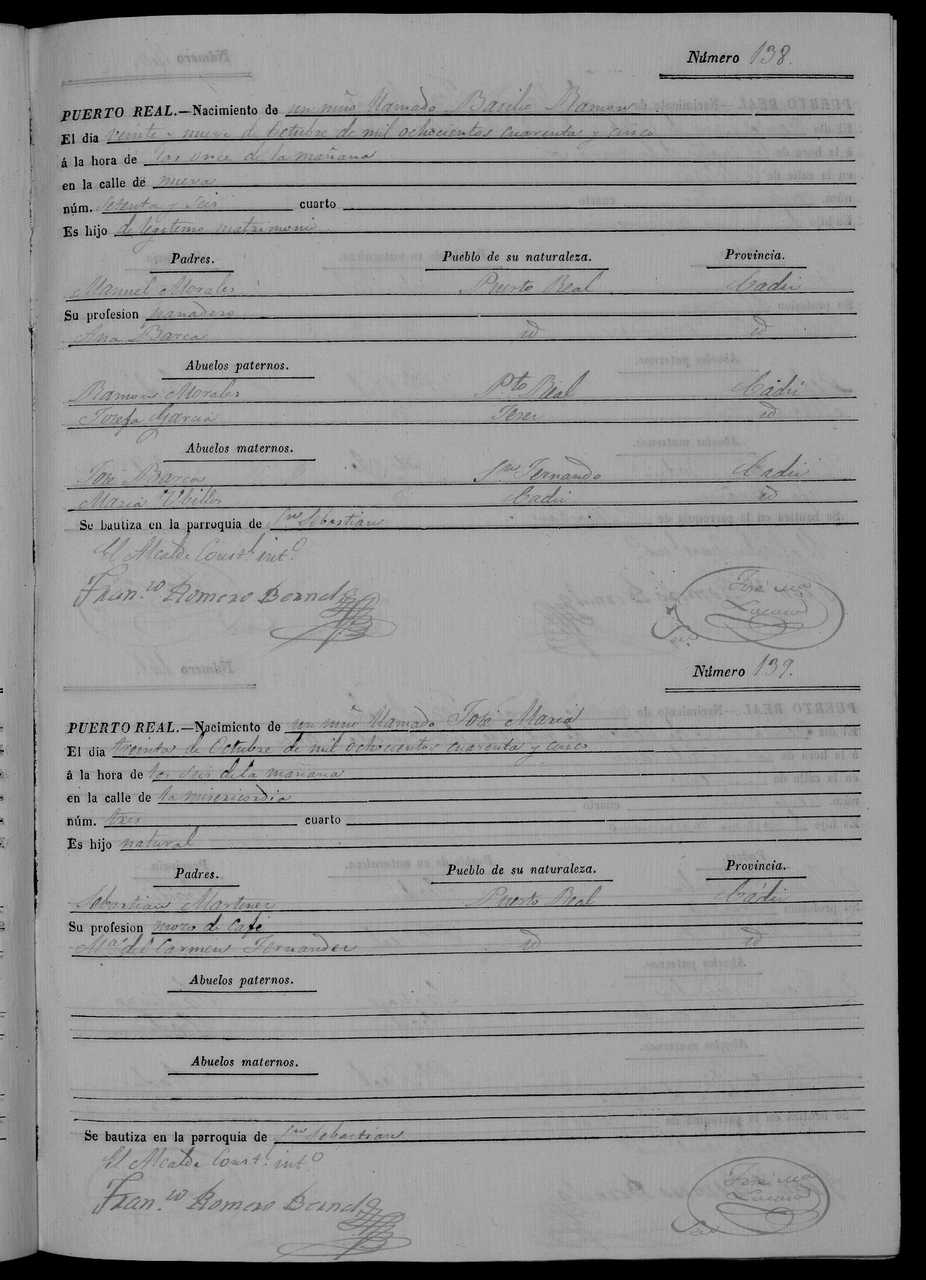 Número 138.
PUERTO REAL.—Nacimiento de un niño llamado Basilio Ramon
El dia veinte y nueve de Octubre de mil ochocientos cuarenta y cinco
á la hora de las once de la mañana
en la calle de nueva
núm. setenta y seis cuarto
Es hijo de legitimo matrimonio
Padres. Pueblo de su naturaleza. Provincia.
Manuel Morales Puerto Real Cadiz
Su profesion panadero
Ana Barca id id
Abuelos paternos.
Ramon Morales Pto Real Cádiz
Josefa Garcia Jerez id
Abuelos maternos.
José Barca Sn Fernando Cadiz
Maria Ubillos Cadiz id
Se bautiza en la parroquia de Sn Sebastian
El Alcalde Constl. into
Fran.co Romero Bernal
José Ma
Lozano
Srio.
Número 139.
PUERTO REAL.—Nacimiento de un niño llamado José Maria
El dia treinta de Octubre de mil ochocientos cuarenta y cinco
á la hora de las seis de la mañana
en la calle de la misericordia
núm. tres cuarto
Es hijo natural
Padres. Pueblo de su naturaleza. Provincia.
Sebastian Martinez Puerto Real Cádiz
Su profesion mozo de Café
Ma del Carmen Fernandez id id
Abuelos paternos.
Abuelos maternos.
Se bautiza en la parroquia de Sn Sebastian
El Alcalde Constl. into
Fran.co Romero Bernal
José Ma
Lozano
Srio